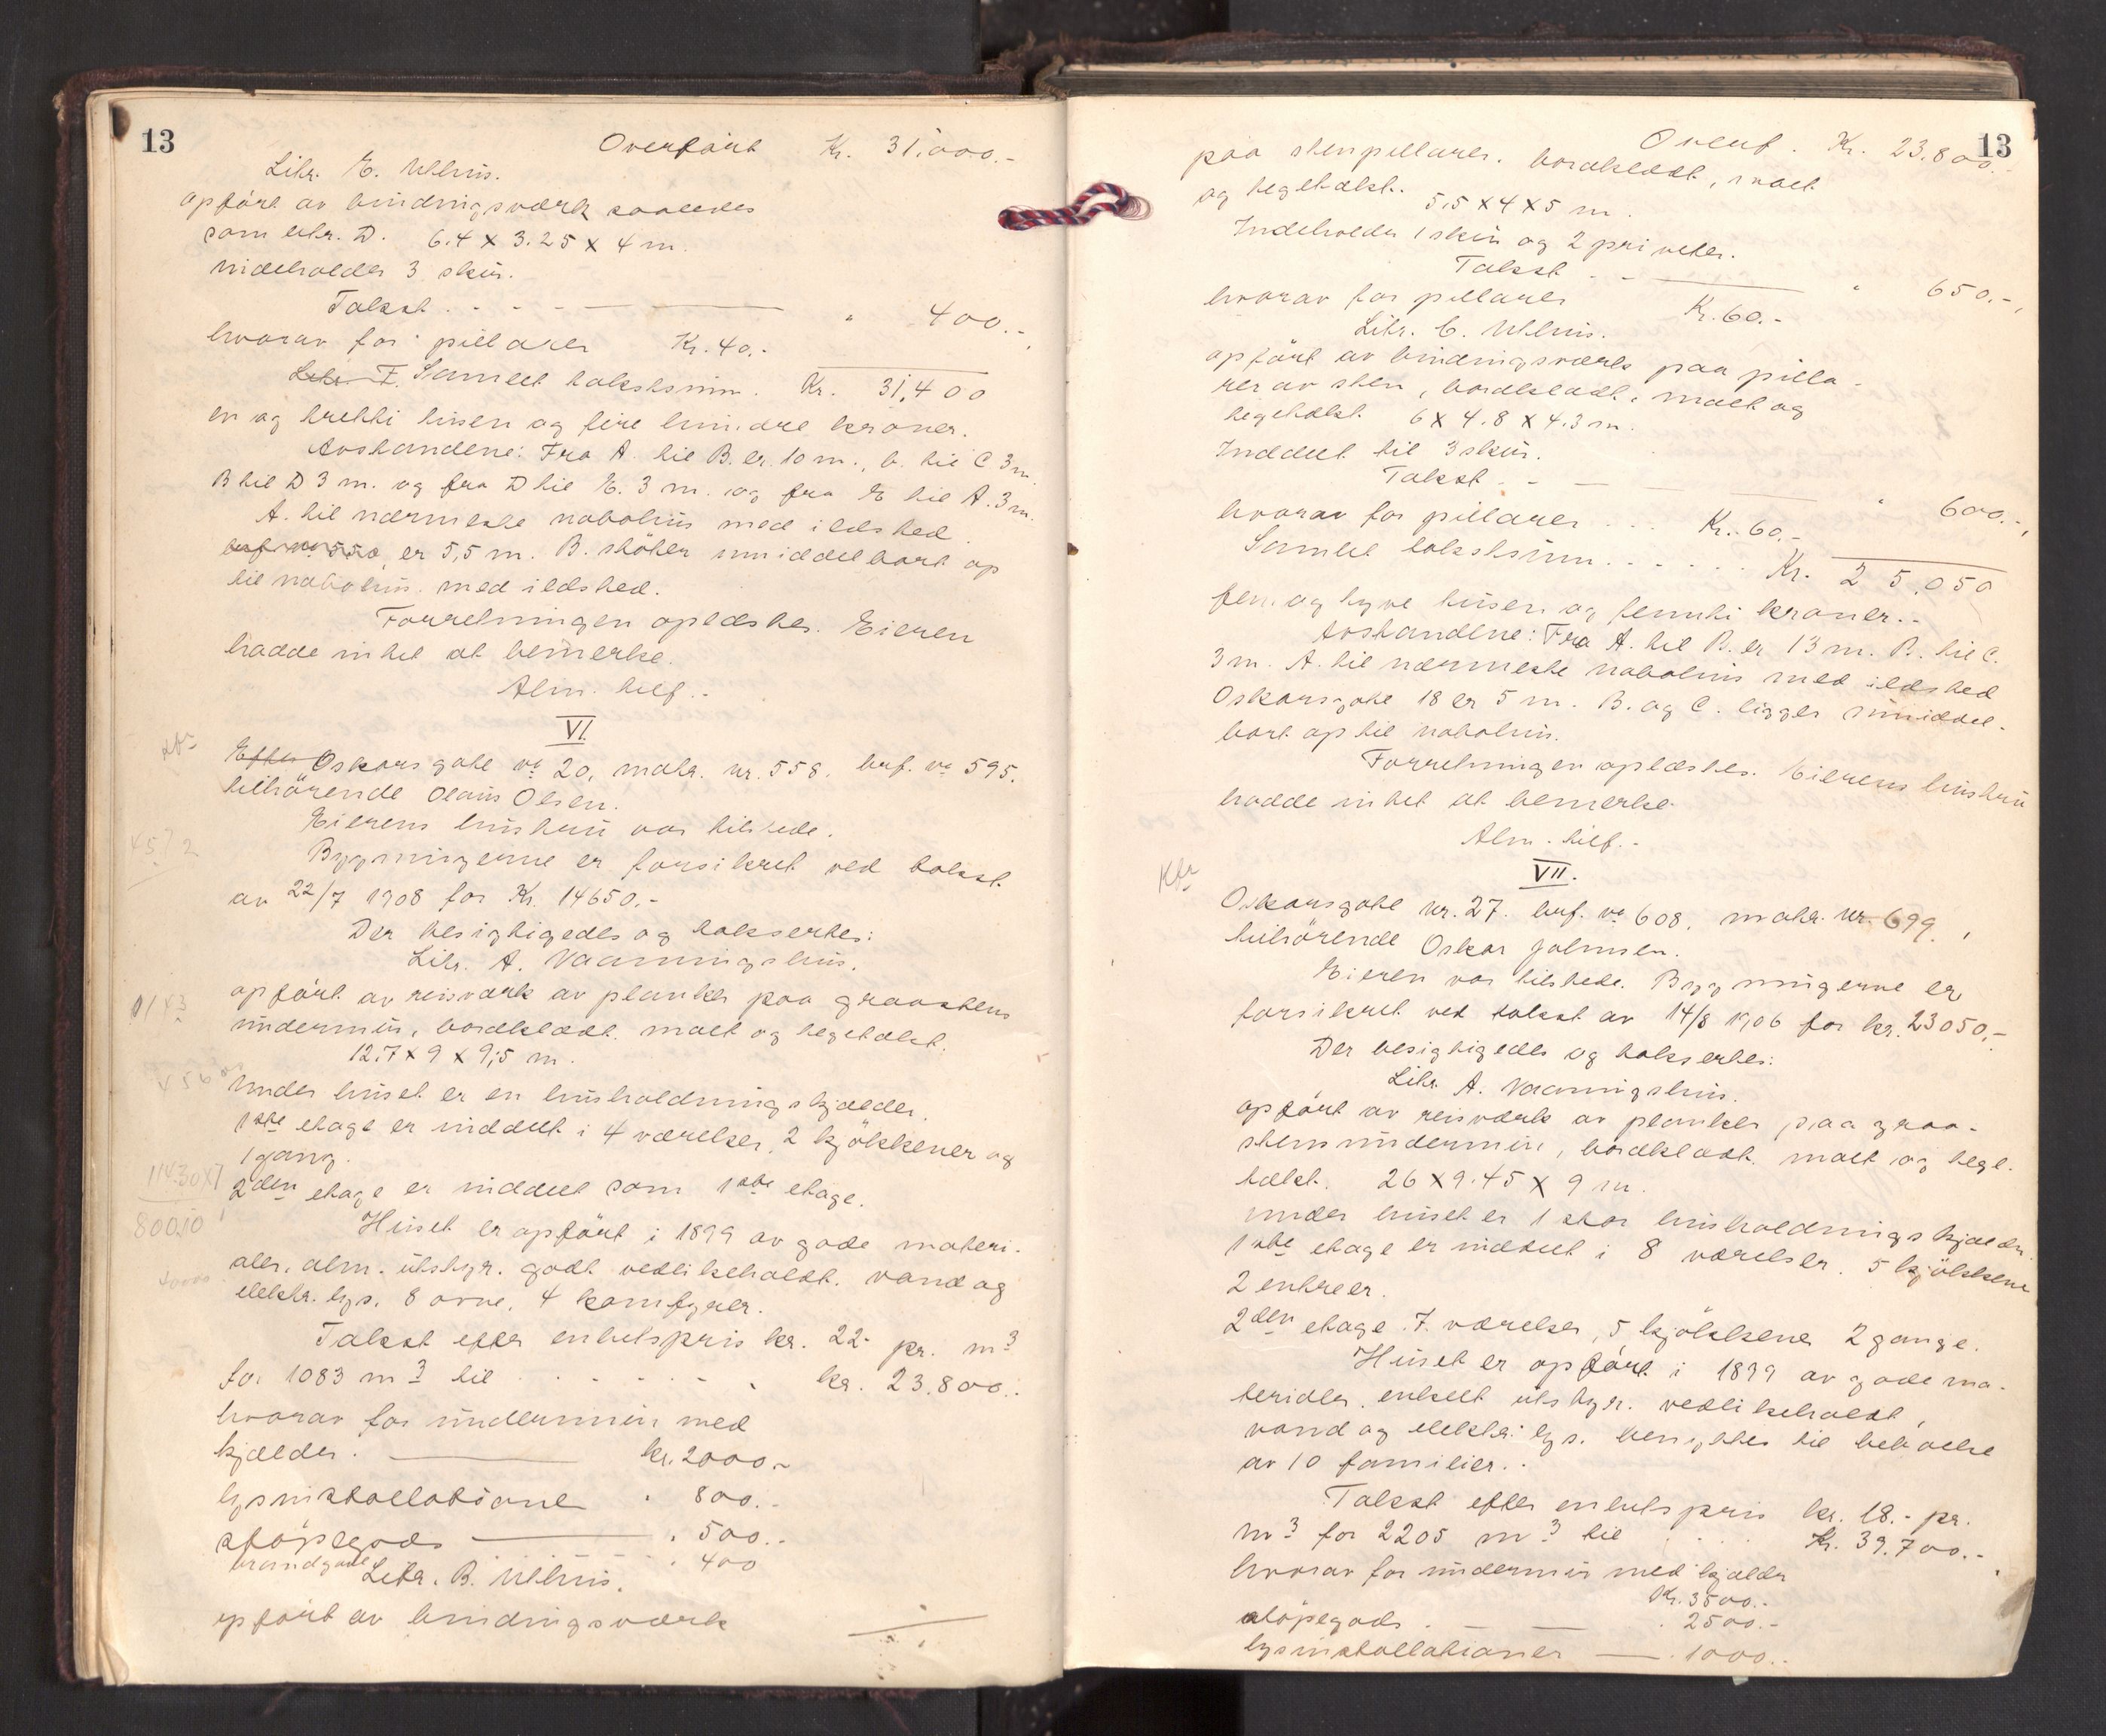 13
Overført Kr. 31,000.-
Litr. E. Uthus.
opført av bindingsværk saaledes
som litr. D. 6.4 X 3.25 X 4 m.
indeholder 3 skur.
Takst . - - - " 400.-
hvorav for pillarer Kr. 40.-
Litr. F. Samlet takstsum. Kr. 31,400
en og tretti tusen og fire hundre kroner.
Avstandene: Fra A. til B. er 10 m., b. til C 3 m.
B til D 3 m. og fra D til E. 3 m. og fra E til A. 3 m.
A. til nærmeste nabohus med ildsted
brf. no 550, er 5,5 m. B. støter umiddelbart op
til nabohus med ildsted.
Forretningen oplæstes. Eieren
hadde intet at bemerke.
Alm. tilf.-
VI.
Efter Oskarsgate no 20, matr. nr. 558. brf. no 595.
tilhørende Olaus Olsen.
Eierens hustru var tilstede.
Bygningerne er forsikret ved takst
av 22/7 1908 for Kr. 14650.-
Der besigtigedes og taksertes:
Litr. A. Vaaningshus.
opført av reisværk av planker paa graastens
undermur, bordklædt, malt og tegltækt.
12.7 X 9 X 9,5 m.
Under huset er en husholdningskjælder.
1ste etage er inddelt i 4 værelser, 2 kjøkkener og
1 gang.
2den etage er inddelt som 1ste etage.
Huset er opført i 1899 av gode materi-
aler, alm. utstyr. godt vedlikeholdt. vand og
elektr. lys. 8 ovne, 4 komfyrer.
Takst efter enhetspris kr. 22.- pr. m3
for 1083 m3 til . - - - - kr. 23.800.-
hvorav for undermur med
kjælder. kr. 2000.-
lysinstallationer " 800.-
støpegods " 500.-
brandgavl " 400
Litr. B. Uthus.
opført av bindingsværk
4572
1143
11430X7
80010
13
Overf. Kr. 23.800.-
paa stenpillarer, bordklædt, malt
og tegltækt. 5,5 X 4 X 5 m.
Indeholder 1 skur og 2 priveter.
Takst . - " 650.-
hvorav for pillarer Kr. 60.-
Litr. C. Uthus.
opført av bindingsværk paa pilla-
rer av sten, bordklædt, malt og
tegltækt. 6 X 4.8 X 4.3 m.
Inddelt til 3 skur.
Takst . - - " 600.-
hvorav for pillarer . . . Kr. 60.-
Samlet takstsum . . . . . . Kr. 25.050
fem og tyve tusen og femti kroner.-
Avstandene: Fra A. til B. er 13 m. B. til C.
3 m. A. til nærmeste nabohus med ildsted
Oskarsgate 18 er 5 m. B. og C. ligger umiddel-
bart op til nabohus.
Forretningen oplæstes. Eierens hustru
hadde intet at bemerke
Alm. tilf.-
VII.
Oskarsgate nr. 27. brf. no 608, matr. nr. 699,
tilhørende Oskar Johnsen.
Eieren var tilstede. Bygningerne er
forsikret ved takst av 14/8 1906 for kr. 23050.-
Der besigtigedes og taksertes:
Litr. A. Vaaningshus.
opført av reisværk av planker paa graa-
stensundermur, bordklædt, malt og tegl-
tækt. 26 X 9.45 X 9 m.
under huset er 1 stor husholdningskjælder.
1ste etage er inddelt i 8 værelser, 5 kjøkkener
2 entreer.
2den etage 7 værelser, 5 kjøkkener 2 gange.
Huset er opført i 1899 av gode ma-
terialer, enkelt utstyr. vedlikeholdt,
vand og elektr. lys. benyttes til beboelse
av 10 familier.
Takst efter enhetspris kr. 18.- pr.
m3 for 2205 m3 til . . . Kr. 39.700.-
hvorav for undermur med kjælder
Kr. 3500.-
støpegods . - - " 2500.-
lysinstallationer - " 1000.-